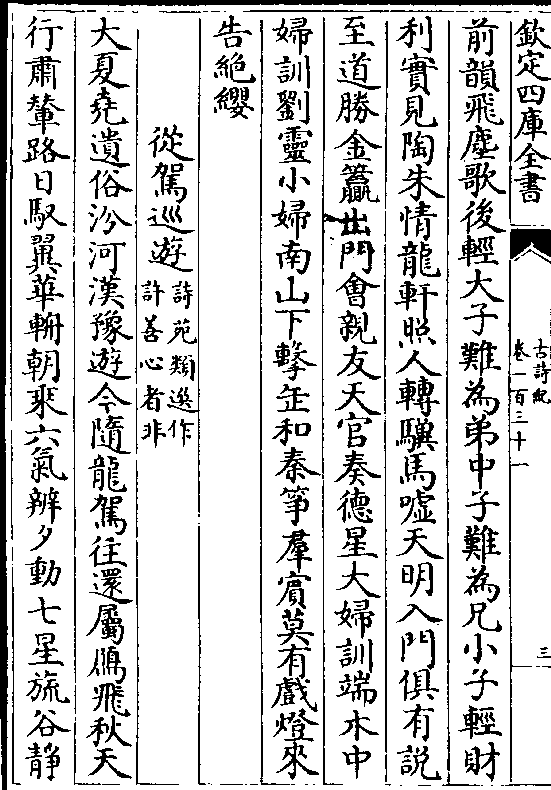 欽定四庫全書
古詩紀
卷一百三十一
三
前韻飛塵歌後輕大子難為弟中子難為兄小子輕財
利實見陶朱情龍軒照人轉驥馬噓天明入門俱有説
至道勝金籯出門會親友天官奏德星大婦訓端木中
婦訓劉靈小婦南山下擊缶和秦箏羣賓莫有戲燈來
告絶纓
從駕巡遊詩苑類選作
許善心者非
大夏堯遺俗汾河漢豫遊今隨龍駕往還屬鴈飛秋天
行肅輦路日馭翼華輈朝乘六氣辨夕動七星旒谷静